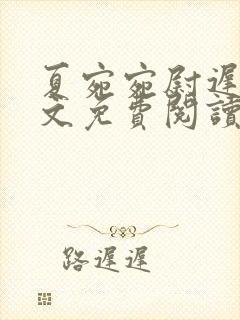 夏宛宛尉遲
文免費閱讀
路遲遲